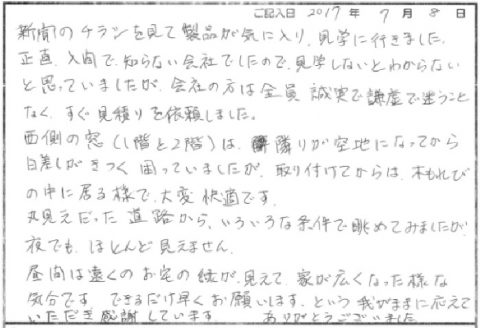 ご記入日 2017 年 7 月 8 日
新聞のチラシを見て製品が気に入り、見学に行きました。
正直、入間で、知らない会社でしたので、見学しないとわからない
と思っていましたが、会社の方は全員 誠実で謙虚で迷うこと
なく、すぐ見積りを依頼しました。
西側の窓(1階と2階)は、隣りが空地になってから
日差しがきつく 困っていましたが、取り付けてからは、木もれび
の中に居る様で、大変 快適です。
丸見えだった 道路から、いろいろな条件で眺めてみましたが、
夜でも、ほとんど見えません。
昼間は遠くのお宅の 緑が、見えて、家が広くなった様な
気分です できるだけ早くお願いします、という 我がままに応えて
いただき感謝しています ありがとうございました